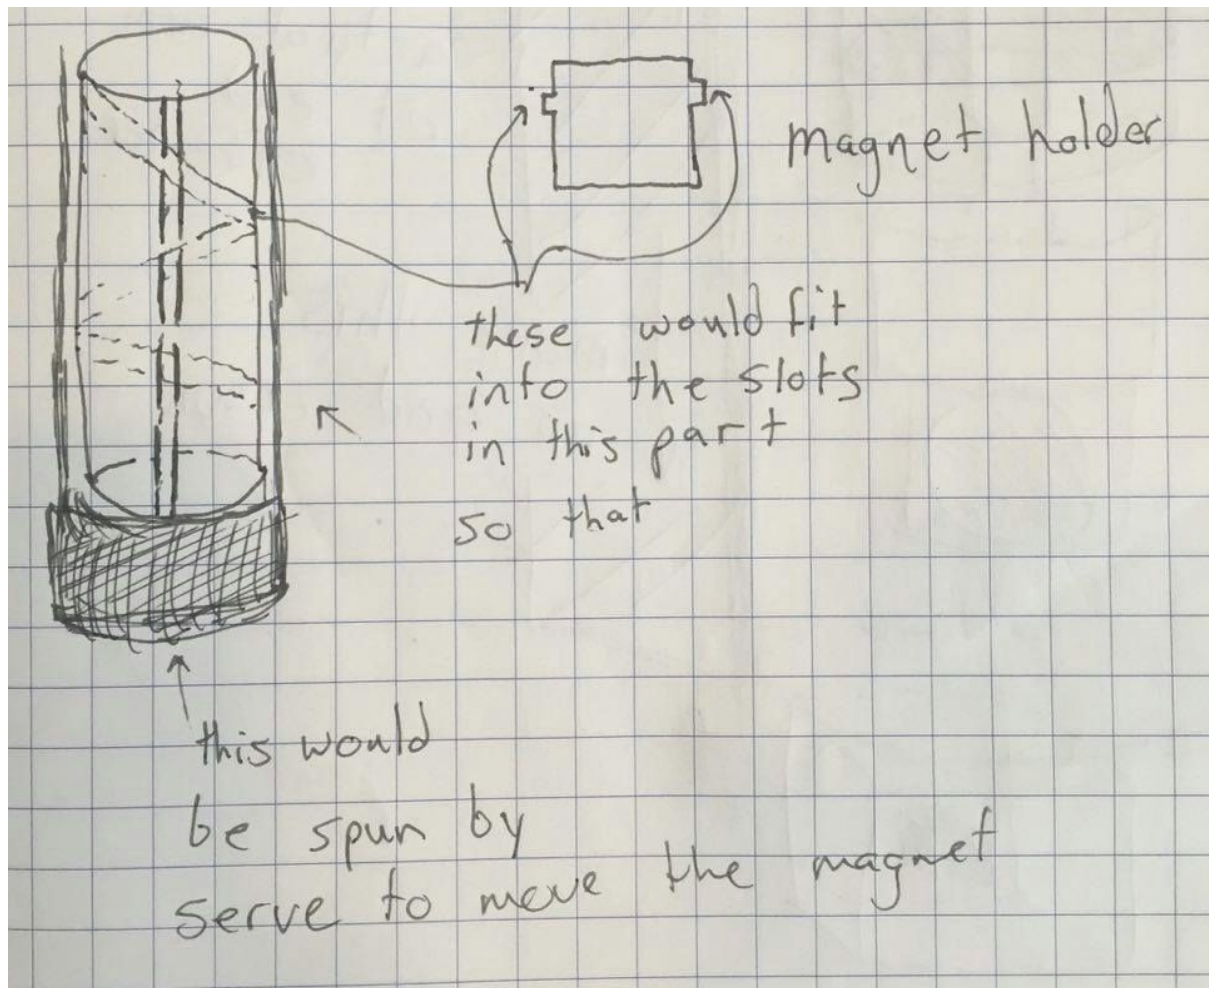 magnet holder
these would fit
into the slots
in this part
so that
this would
be spun by
serve to move the magnet